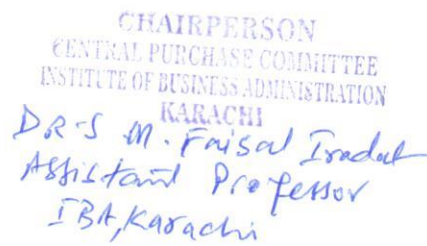 CHAIRPERSON
CENTRAL PURCHASE COMMITTEE
INSTITUTE OF BUSINESS ADMINISTRATION
KARACHI
DR-S M. Faisal Iradat
Assistant Professor
IBA, Karachi